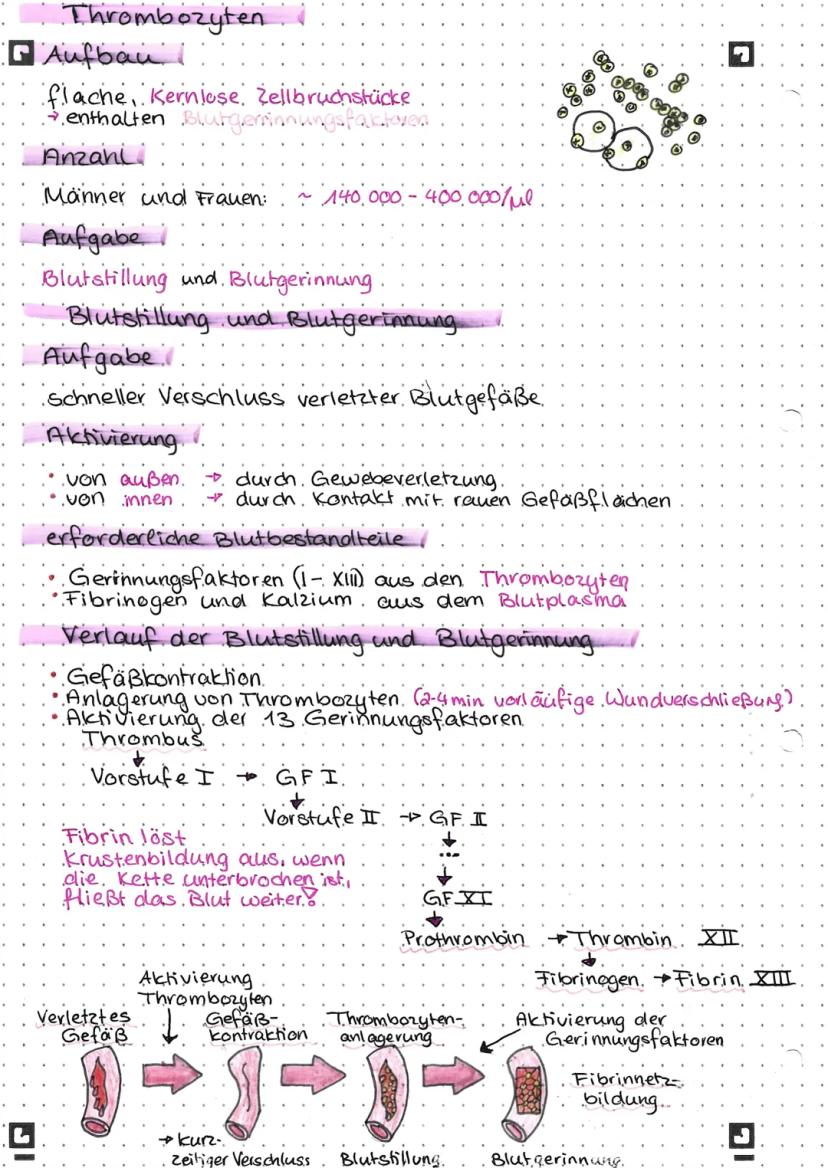 Thrombozyten
Aufbau
flache, Kernlose Zellbruchstücke
→ enthalten Blutgerinnungsfaktoren
Anzahl
Männer und Frauen: ~ 140 000 - 400 000/µl
Aufgabe
Blutstillung und Blutgerinnung
Blutstillung und Blutgerinnung
Aufgabe
schneller Verschluss verletzter Blutgefäße
Aktivierung
• von außen → durch Gewebeverletzung
• von innen → durch Kontakt mit rauen Gefäßflächen
erforderliche Blutbestandteile
• Gerinnungsfaktoren (I - XIII) aus den Thrombozyten
• Fibrinogen und Kalzium aus dem Blutplasma
Verlauf der Blutstillung und Blutgerinnung
• Gefäßkontraktion
• Anlagerung von Thrombozyten (2-4min vorläufige Wundverschließung)
• Aktivierung der 13 Gerinnungsfaktoren
Thrombus
↓
Vorstufe I → GF I
↓
Vorstufe II → GF II
↓
...
↓
GF XI
↓
Prothrombin → Thrombin XII
↓
Fibrinogen → Fibrin XIII
Fibrin löst
Krustenbildung aus, wenn
die Kette unterbrochen ist,
fließt das Blut weiter!
Aktivierung
Thrombozyten
Verletztes
Gefäß
Gefäß-
kontraktion
Thrombozyten-
anlagerung
Aktivierung der
Gerinnungsfaktoren
Fibrinnetz-
bildung
→ kurz-
zeitiger Verschluss
Blutstillung
Blutgerinnung